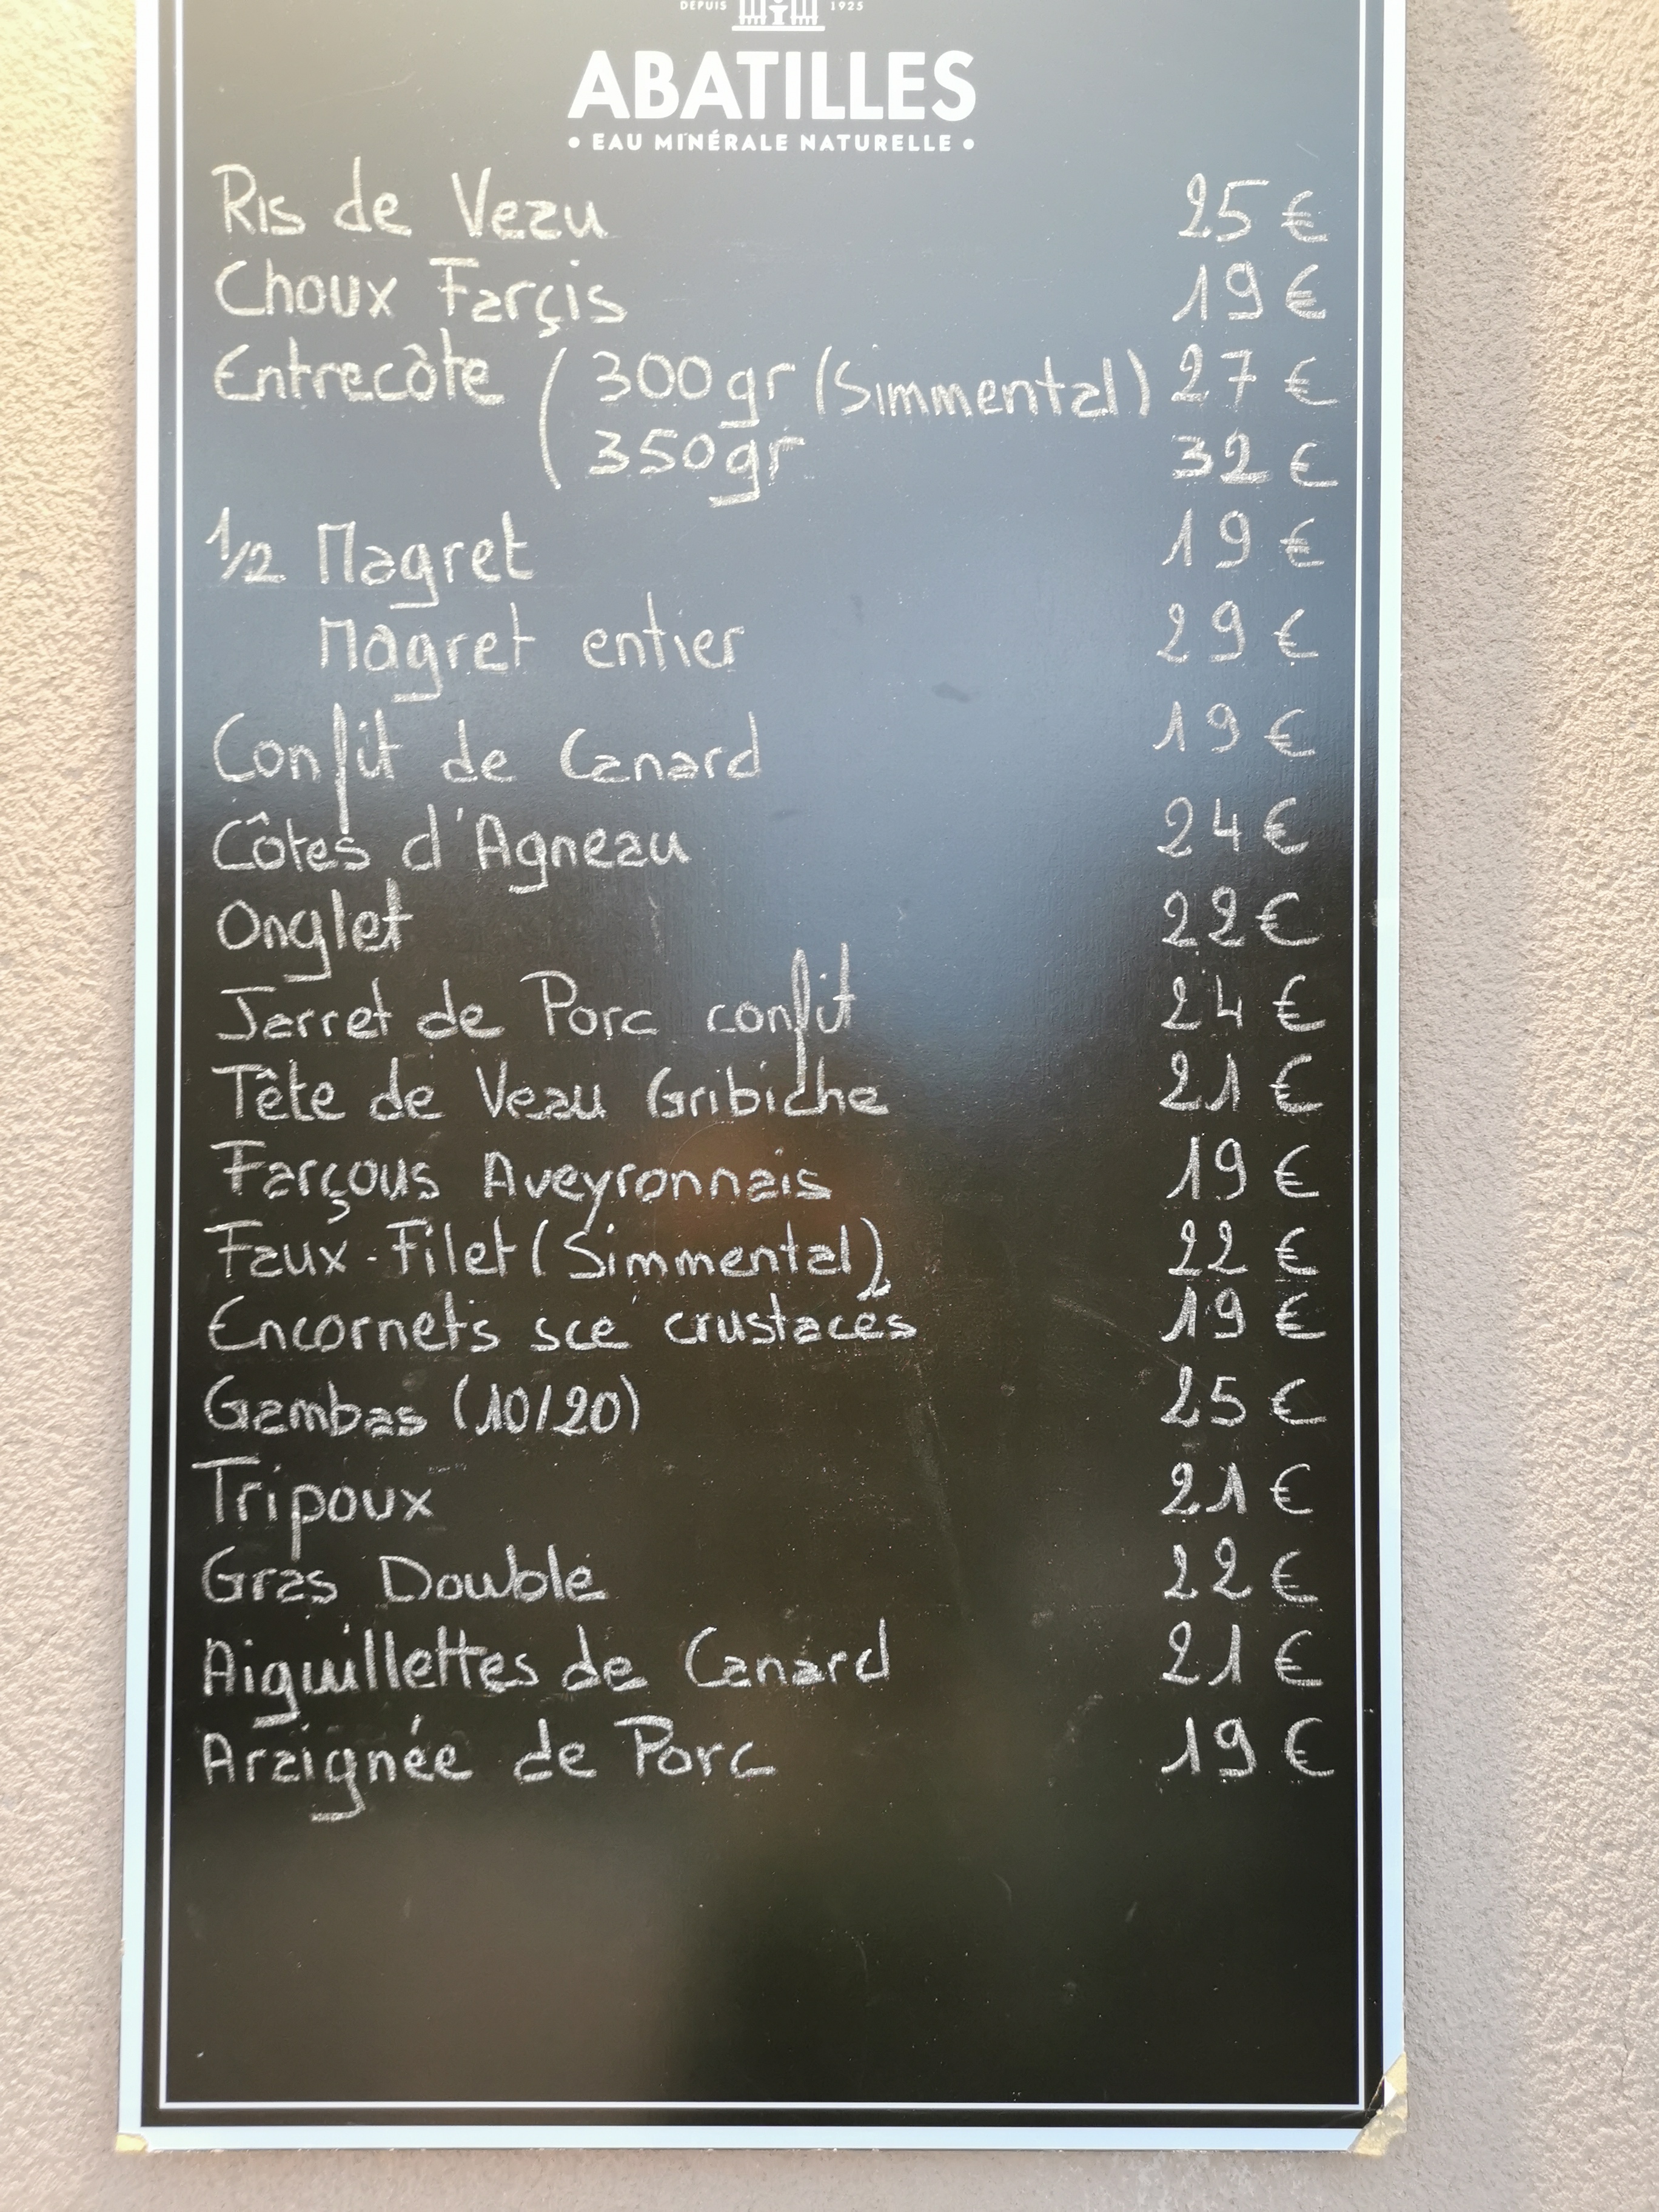 DEPUIS 1925
ABATILLES
• EAU MINÉRALE NATURELLE •
Ris de Veau 25 €
Choux Farçis 19 €
Entrecôte ( 300 gr (Simmental) 27 €
350 gr 32 €
1/2 Magret 19 €
Magret entier 29 €
Confit de Canard 19 €
Côtes d'Agneau 24 €
Onglet 22 €
Jarret de Porc confit 24 €
Tête de Veau Gribiche 21 €
Farçous Aveyronnais 19 €
Faux-Filet (Simmental) 22 €
Encornets sce crustacés 19 €
Gambas (10/20) 25 €
Tripoux 21 €
Gras Double 22 €
Aiguillettes de Canard 21 €
Araignée de Porc 19 €